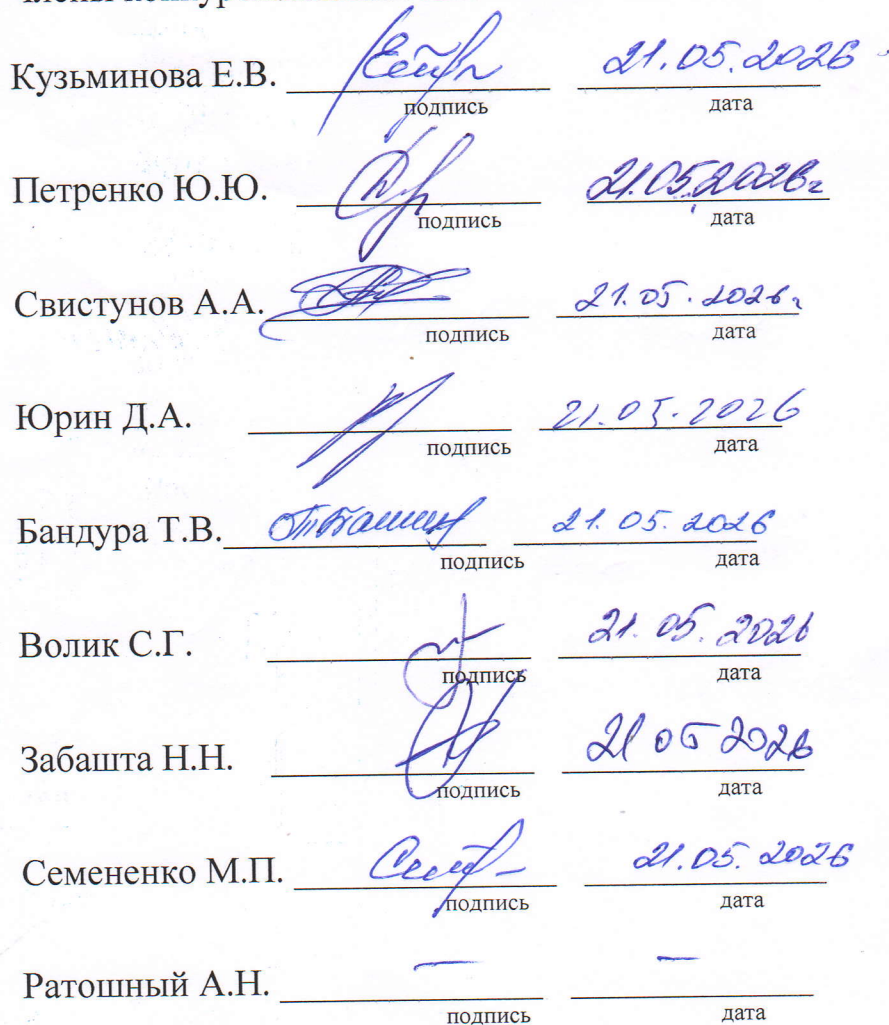 Кузьминова Е.В. 21.05.2026
подпись дата
Петренко Ю.Ю. 21.05.2026г
подпись дата
Свистунов А.А. 21.05.2026г
подпись дата
Юрин Д.А. 21.05.2026
подпись дата
Бандура Т.В. 21.05.2026
подпись дата
Волик С.Г. 21.05.2026
подпись дата
Забашта Н.Н. 21 05 2026
подпись дата
Семененко М.П. 21.05.2026
подпись дата
Ратошный А.Н. – –
подпись дата